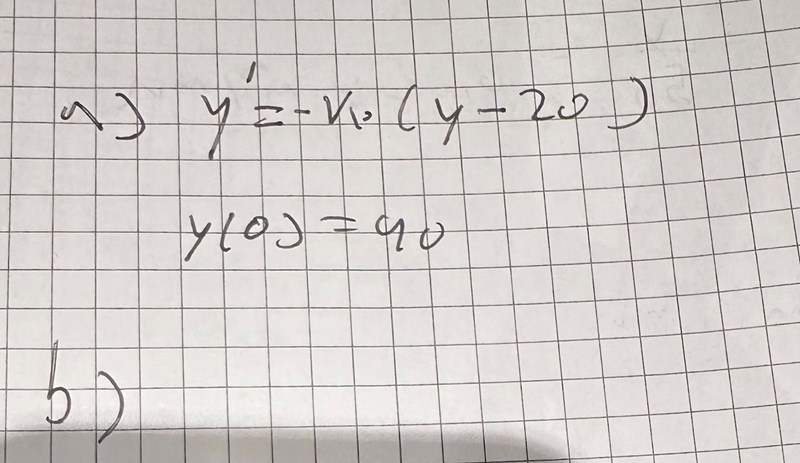 a) y' = -k · (y - 20)
y(0) = 90
b)